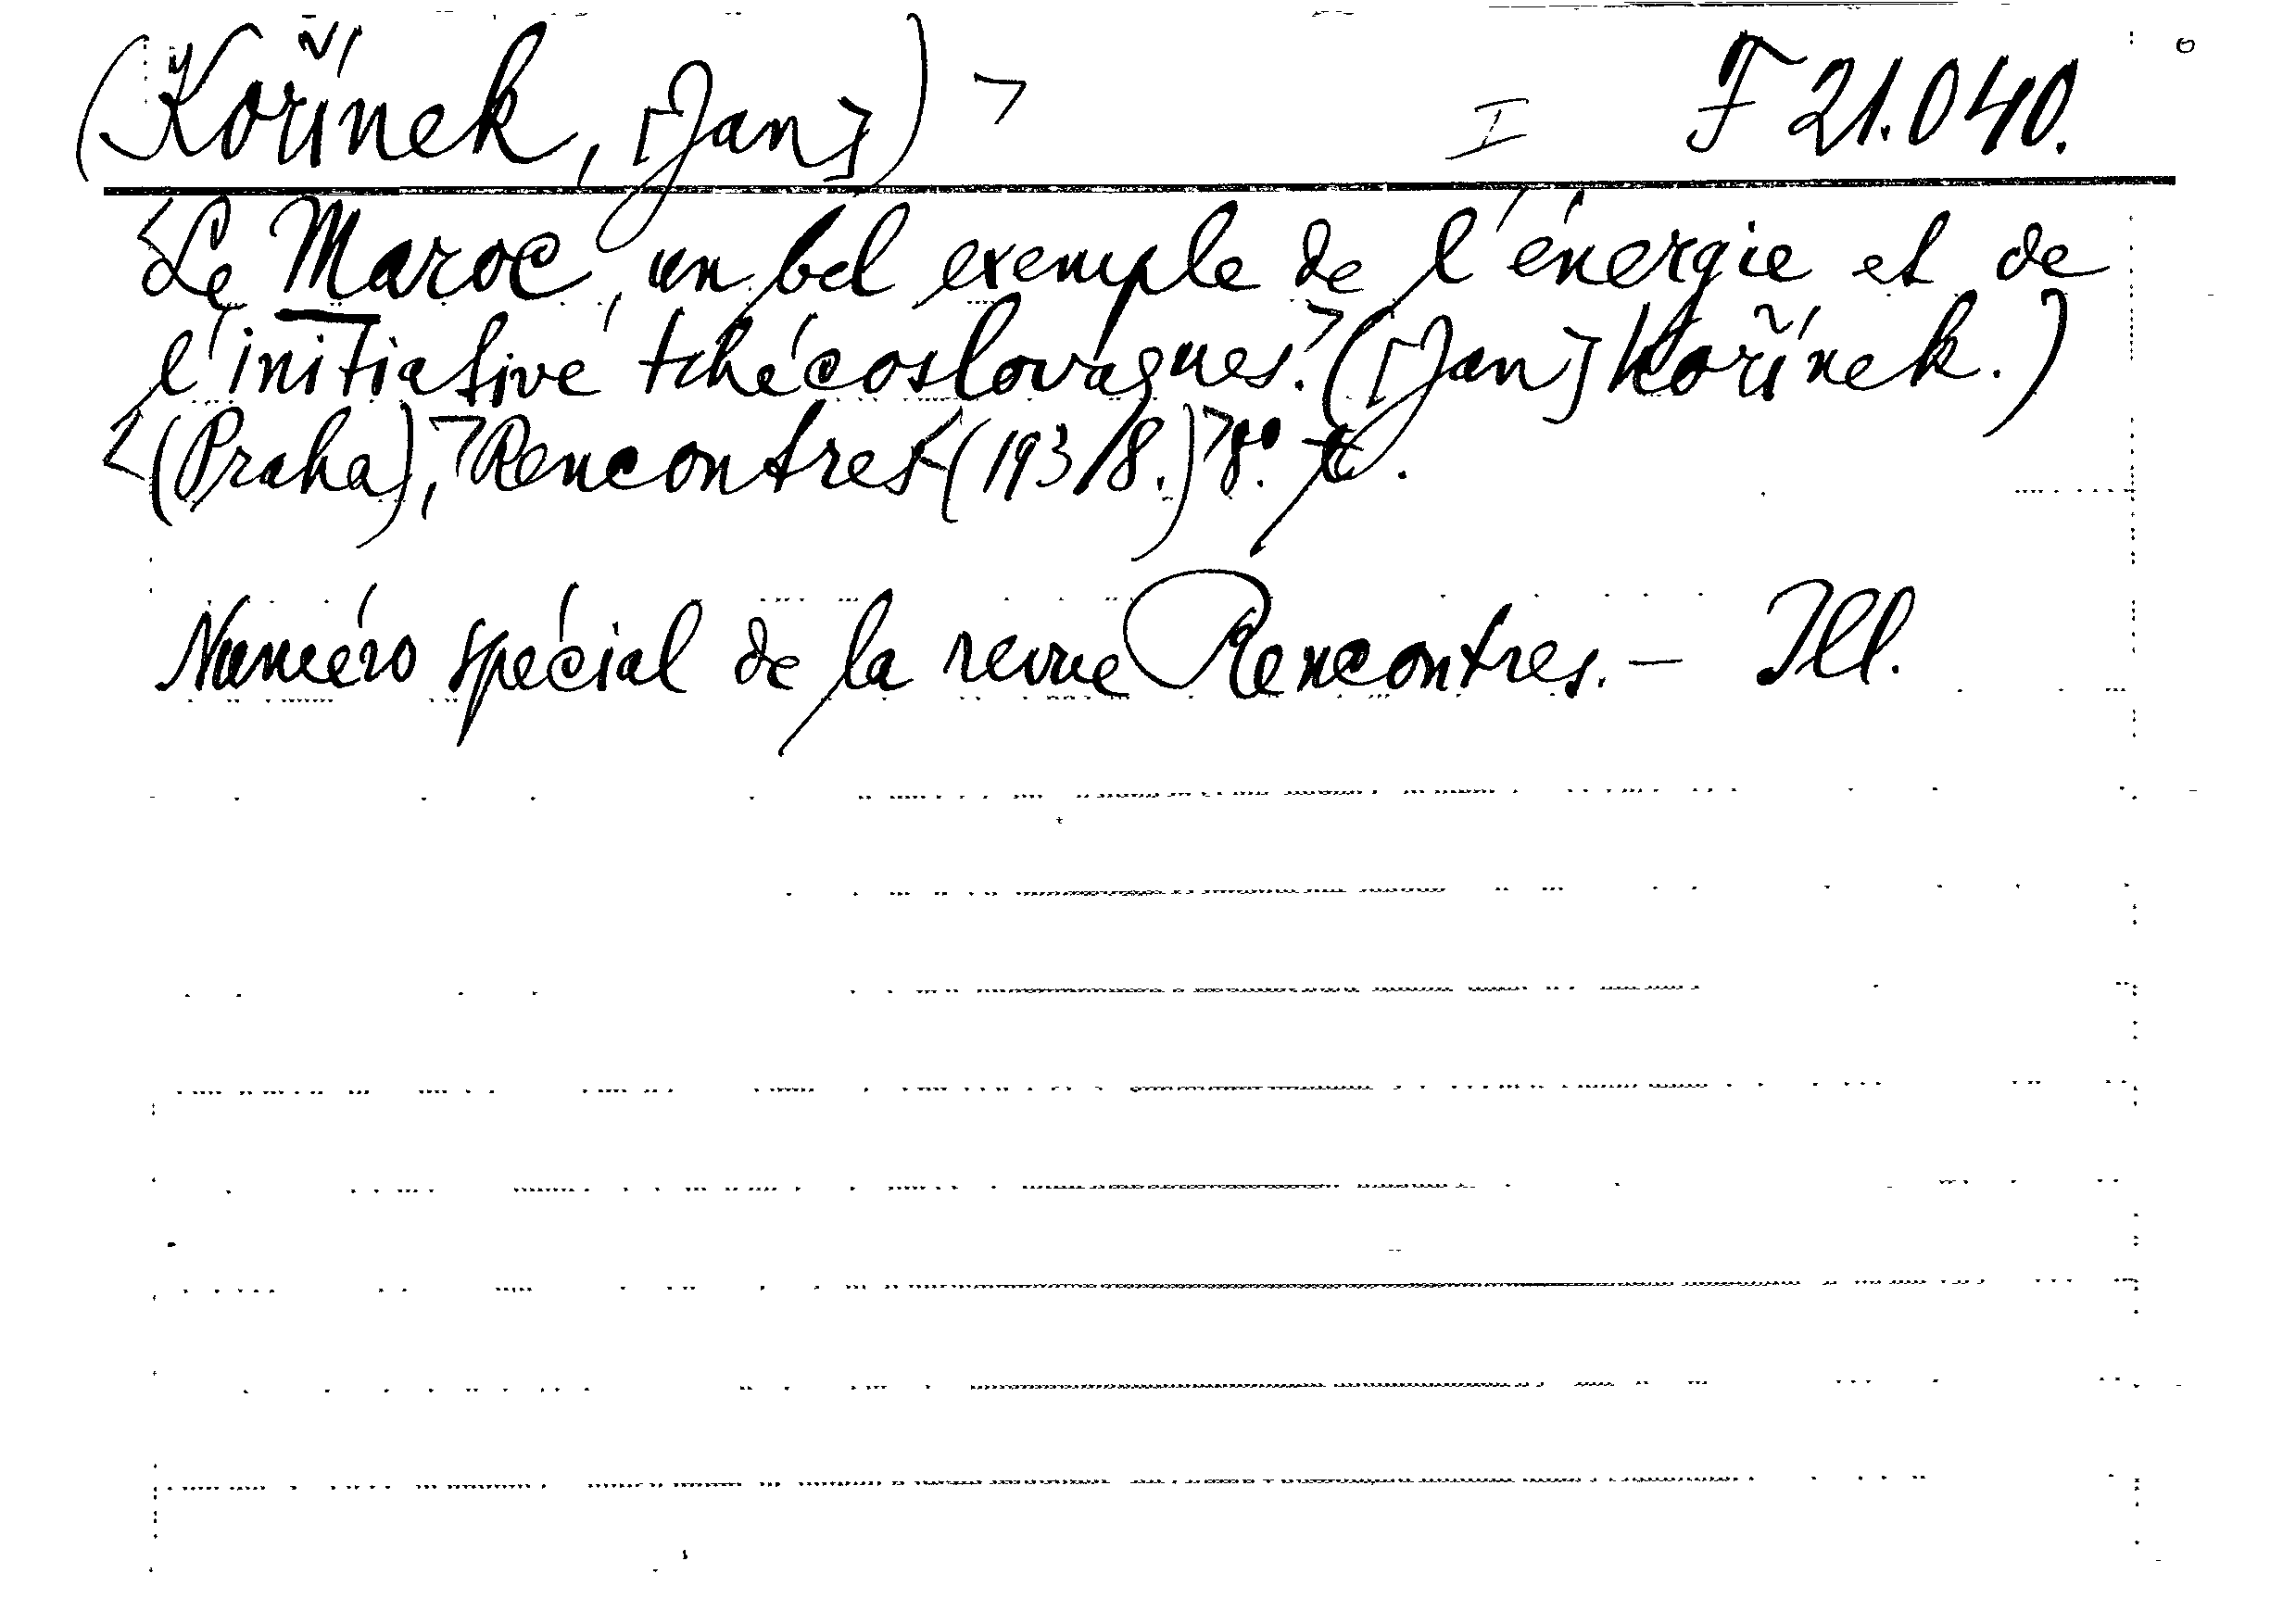 (Kořínek, [Jan]) > I F 21.040.
<Le Maroc, un bel exemple de l'énergie et de
l'initiative tchécoslovaques.> ([Jan] Kořínek.)
<(Praha),> Rencontres <(193/8.)> 8°.
Numéro spécial de la revue Rencontres. — Ill.